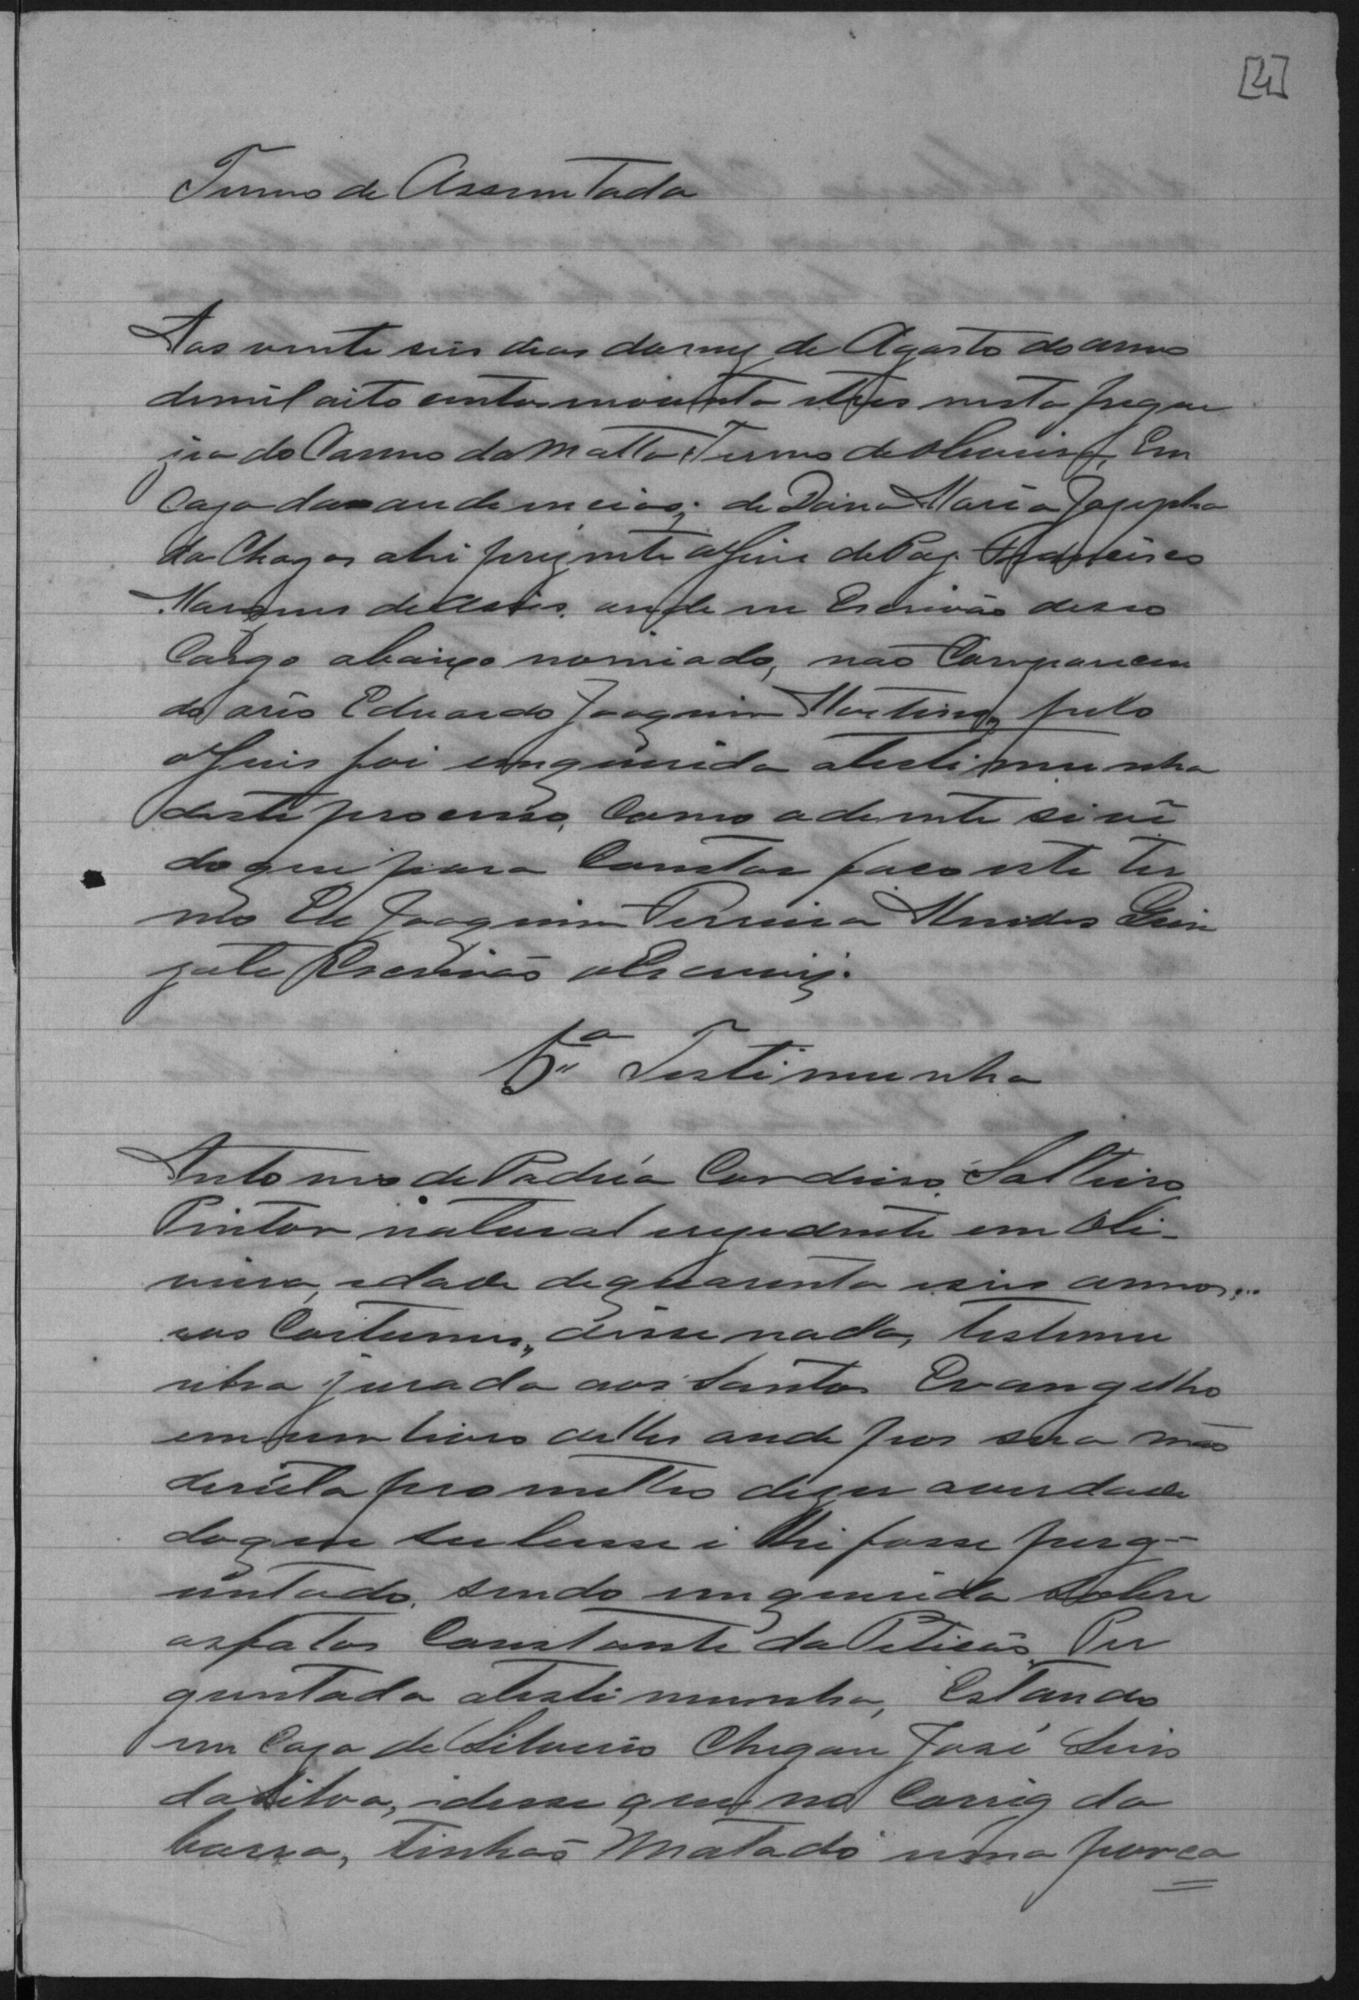 [4]
Termo de Assentada
Aos vinte seis dias do mez de Agosto do anno
de mil oito centos noventa e tres nesta fregue
zia do Carmo da Matta Termo de Oliveira, Em
Caza das audiencias; de Dona Maria Jozepha
da Chagas ahi prezente o Juis de Paz Francisco
Marques de Assis, onde eu Escrivão desse
Cargo abaixo nomiado, não Comparecen
do orêo Eduardo Joaquim Martins, pelo
o Juis foi enquirida a testimunha
deste processo, Como adiente si vê
do que para Constar faço este ter
mo Eu Joaquim Ferreira Mendes
Escrivão o Escrevi.
5ª Testimunha
Antonio de Padua Cordeiro, Solteiro
Pintor natural e rezedente em Oli-
veira, edade de quarenta e seis annos,
aos Costumes, disse nada, testemu
nha jurada aos Santos Evangelho
em um livro delles onde pos sua mão
direita prometteo dizer averdade
do que soubesse i lhi fosse perg-
untado, sendo enquerida sobre
os fatos Constante da Petição, Per
guntada a testimunha, Estando
em Caza de Silverio Chegou José Luis
da Silva, e disse que no Correg da
barra, tinhão Matado uma porca